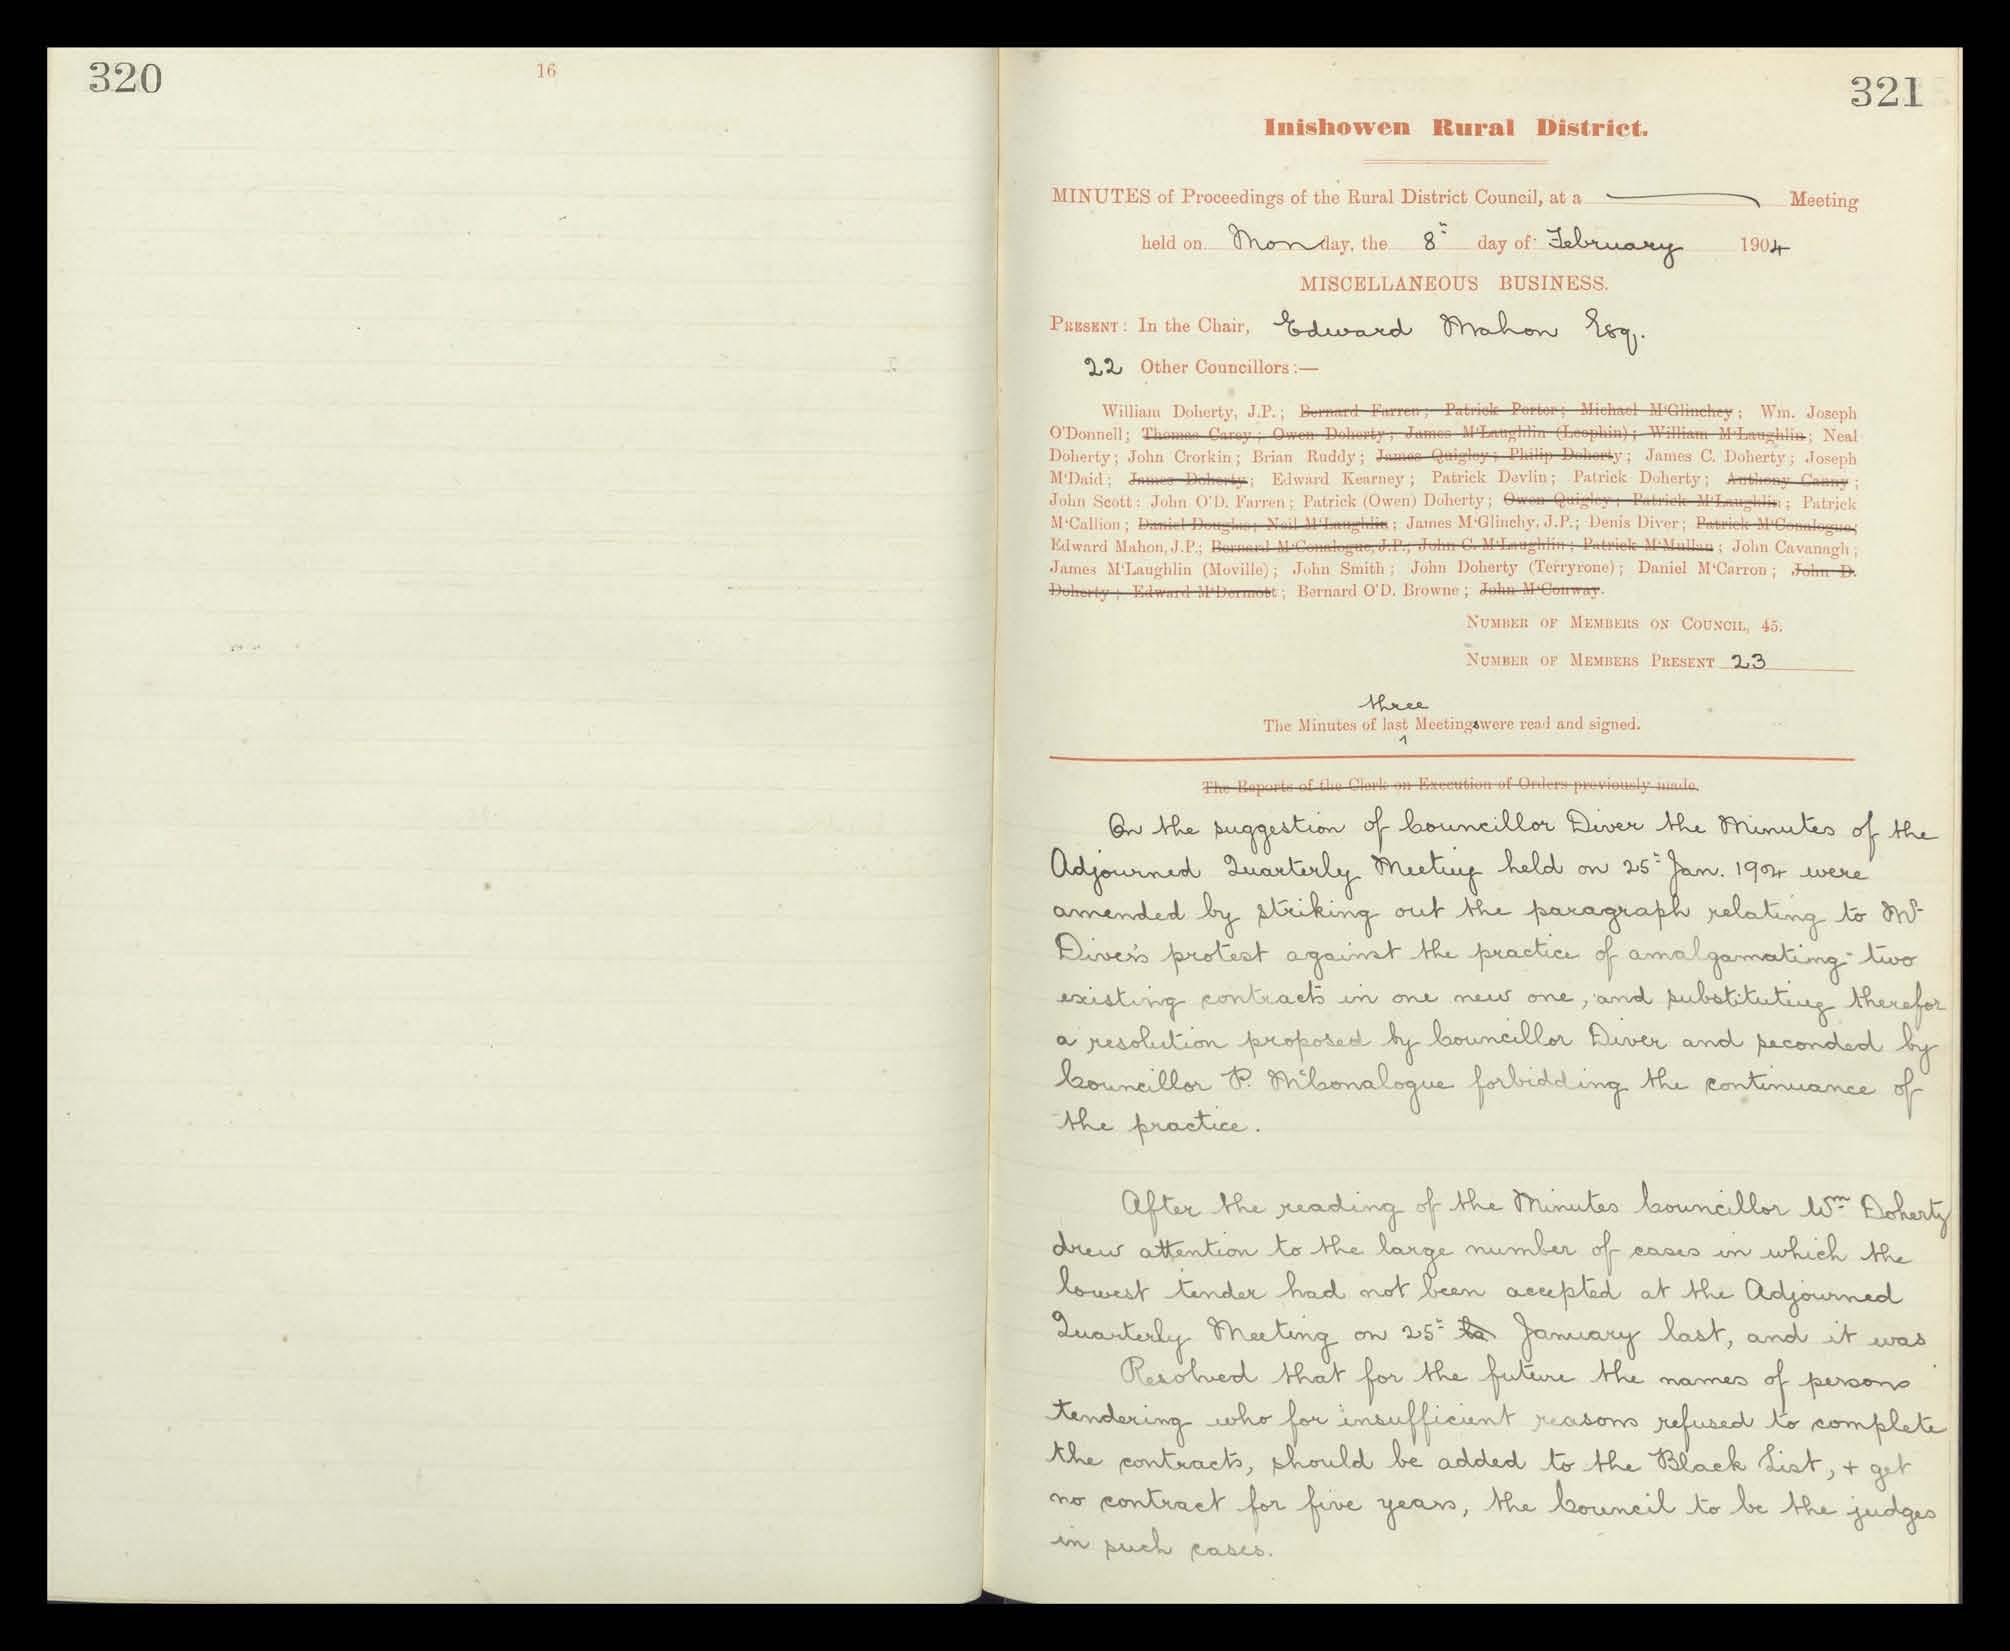 320
16
321
Inishowen Rural District.
MINUTES of Proceedings of the Rural District Council, at a Meeting
held on Monday, the 8th day of February 1904
MISCELLANEOUS BUSINESS.
PRESENT: In the Chair, Edward Mahon Esq.
22 Other Councillors:—
William Doherty, J.P.; Bernard Farren; Patrick Porter; Michael M'Glinchey; Wm. Joseph
O'Donnell; Thomas Carey; Owen Doherty; James M'Laughlin (Leophin); William M'Laughlin; Neal
Doherty; John Crorkin; Brian Ruddy; James Quigley; Philip Doherty; James C. Doherty; Joseph
M'Daid; James Doherty; Edward Kearney; Patrick Devlin; Patrick Doherty; Anthony Canny;
John Scott: John O'D. Farren; Patrick (Owen) Doherty; Owen Quigley; Patrick M'Laughlin; Patrick
M'Callion; Daniel Douglas; Neil M'Laughlin; James M'Glinchy, J.P.; Denis Diver; Patrick M'Conalogue;
Edward Mahon, J.P.; Bernard M'Conalogue, J.P.; John C. M'Laughlin; Patrick M'Mullan; John Cavanagh;
James M'Laughlin (Moville); John Smith; John Doherty (Terryrone); Daniel M'Carron; John D.
Doherty; Edward M'Dermott; Bernard O'D. Browne; John M'Conway.
NUMBER OF MEMBERS ON COUNCIL, 45.
NUMBER OF MEMBERS PRESENT 23
three
The Minutes of last Meetings were read and signed.
The Reports of the Clerk on Execution of Orders previously made.
On the suggestion of Councillor Diver the Minutes of the
Adjourned Quarterly Meeting held on 25th Jan. 1904 were
amended by striking out the paragraph relating to Mr
Diver's protest against the practice of amalgamating two
existing contracts in one new one, and substituting therefor
a resolution proposed by Councillor Diver and seconded by
Councillor P. McConalogue forbidding the continuance of
the practice.
After the reading of the Minutes Councillor Wm Doherty
drew attention to the large number of cases in which the
lowest tender had not been accepted at the Adjourned
Quarterly Meeting on 25th January last, and it was
Resolved that for the future the names of persons
tendering who for insufficient reasons refused to complete
the contracts, should be added to the Black List, + get
no contract for five years, the Council to be the judges
in such cases.